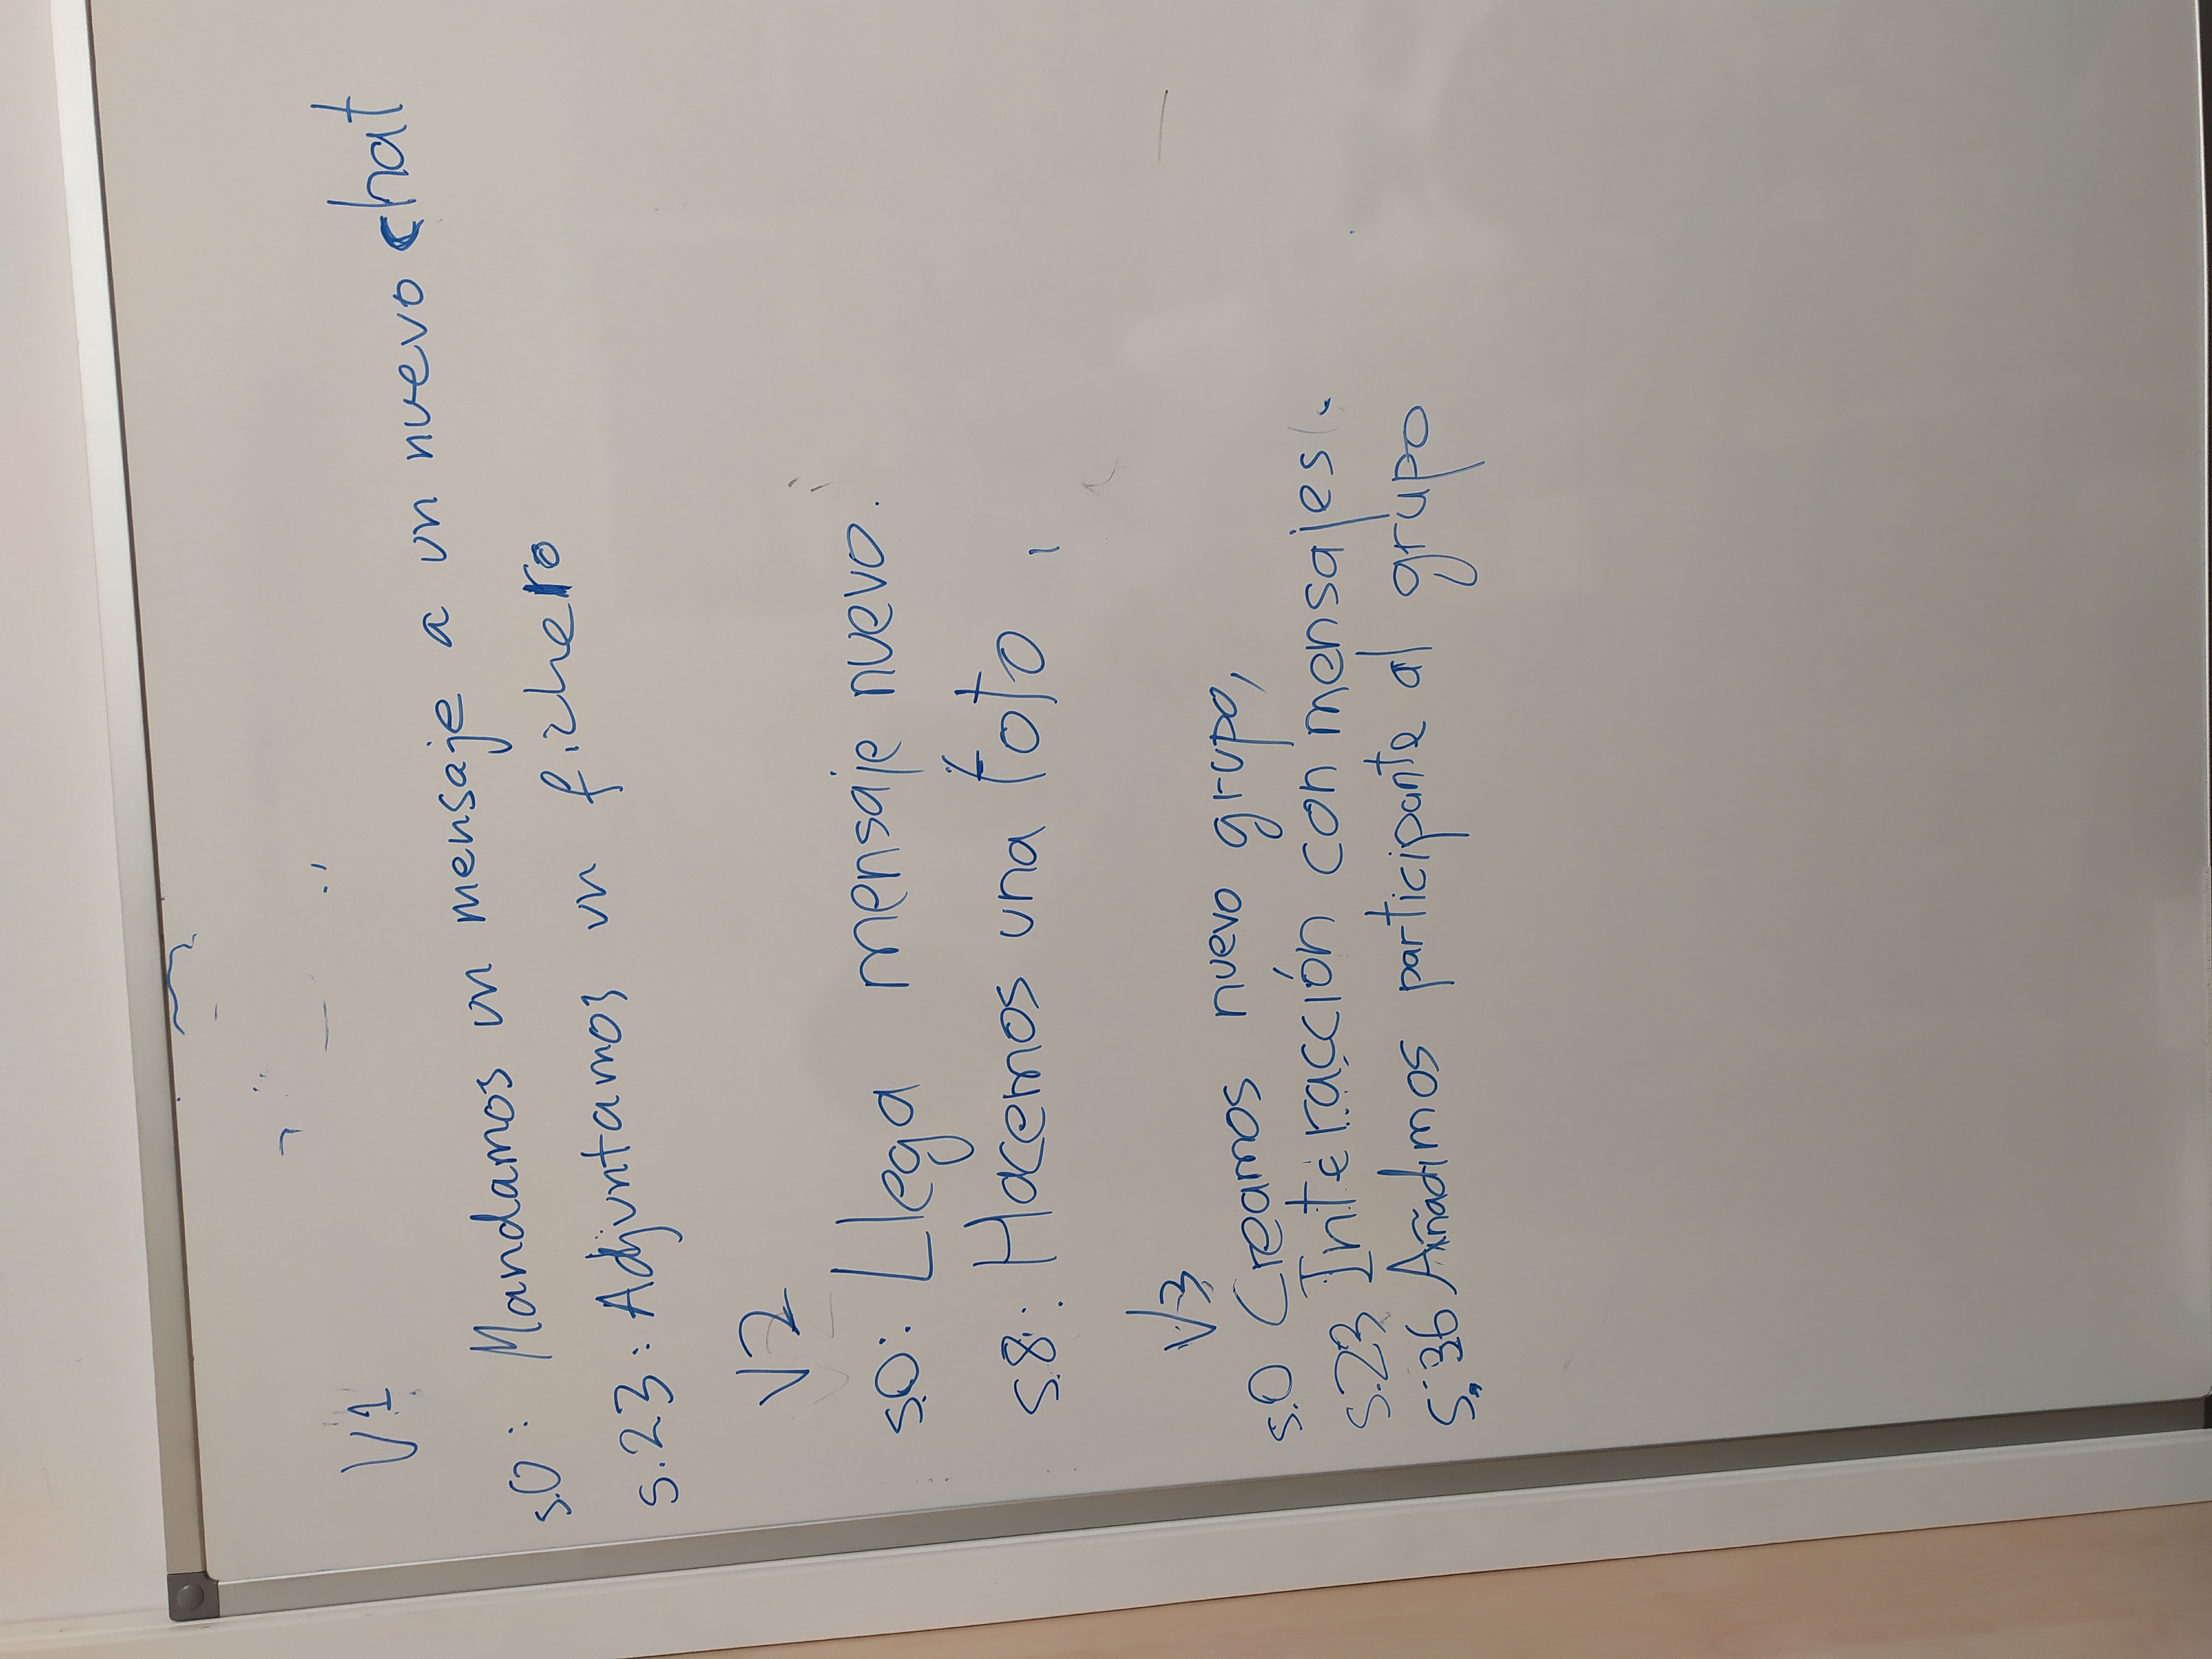 V1
s.0: Mandamos un mensaje a un nuevo chat
s.23: Adjuntamos un fichero
V2
s.0: Llega mensaje nuevo.
s.8: Hacemos una foto
V3
s.0 Creamos nuevo grupo,
s.23 Interacción con mensajes.
s.36 Añadimos participante al grupo